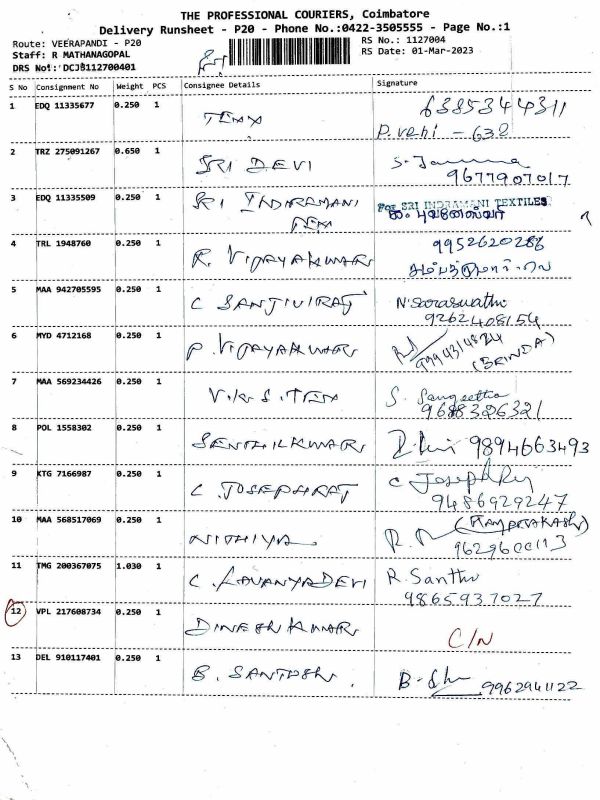 THE PROFESSIONAL COURIERS, Coimbatore
Delivery Runsheet - P20 - Phone No.:0422-3505555 - Page No.:1
Route: VEERAPANDI - P20
RS No.: 1127004
Staff: R MATHANAGOPAL
RS Date: 01-Mar-2023
DRS No!:'DCJB112700401
S No Consignment No Weight PCS Consignee Details Signature
1 EDQ 11335677 0.250 1 TEMX 6385344311
P.vehi - 632
2 TRZ 275091267 0.650 1 SRI DEVI
9677907017
3 EDQ 11335509 0.250 1 SRI INDIRAMANI For SRI INDRAMANI TEXTILES
TEX
4 TRL 1948760 0.250 1 R. VIJAYAKUMAR 9952620286
5 MAA 942705595 0.250 1 C SANJIVIRAJ N.Saraswathi
9262408154
6 MYD 4712168 0.250 1 P. VIJAYAKUMAR
(BRINDA)
7 MAA 569234426 0.250 1 V.K.S.TEX S. Sangeetha
9688326321
8 POL 1558302 0.250 1 SENTHILKUMAR 9894663493
9 KTG 7166987 0.250 1 C. JOSEPHRAJ C JosephRaj
9486929247
10 MAA 568517069 0.250 1 NITHIYA (RAMPRAKASH)
9629600113
11 TMG 200367075 1.030 1 C. LAVANYADEVI R. Santhu
9865937027
12 VPL 217608734 0.250 1 DINESH KUMAR C/N
13 DEL 910117401 0.250 1 B. SANTOSH. 9962941122